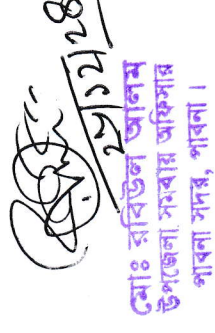 ২৭/১২/২৪
মোঃ রবিউল আলম
উপজেলা সমবায় অফিসার
পাবনা সদর, পাবনা।